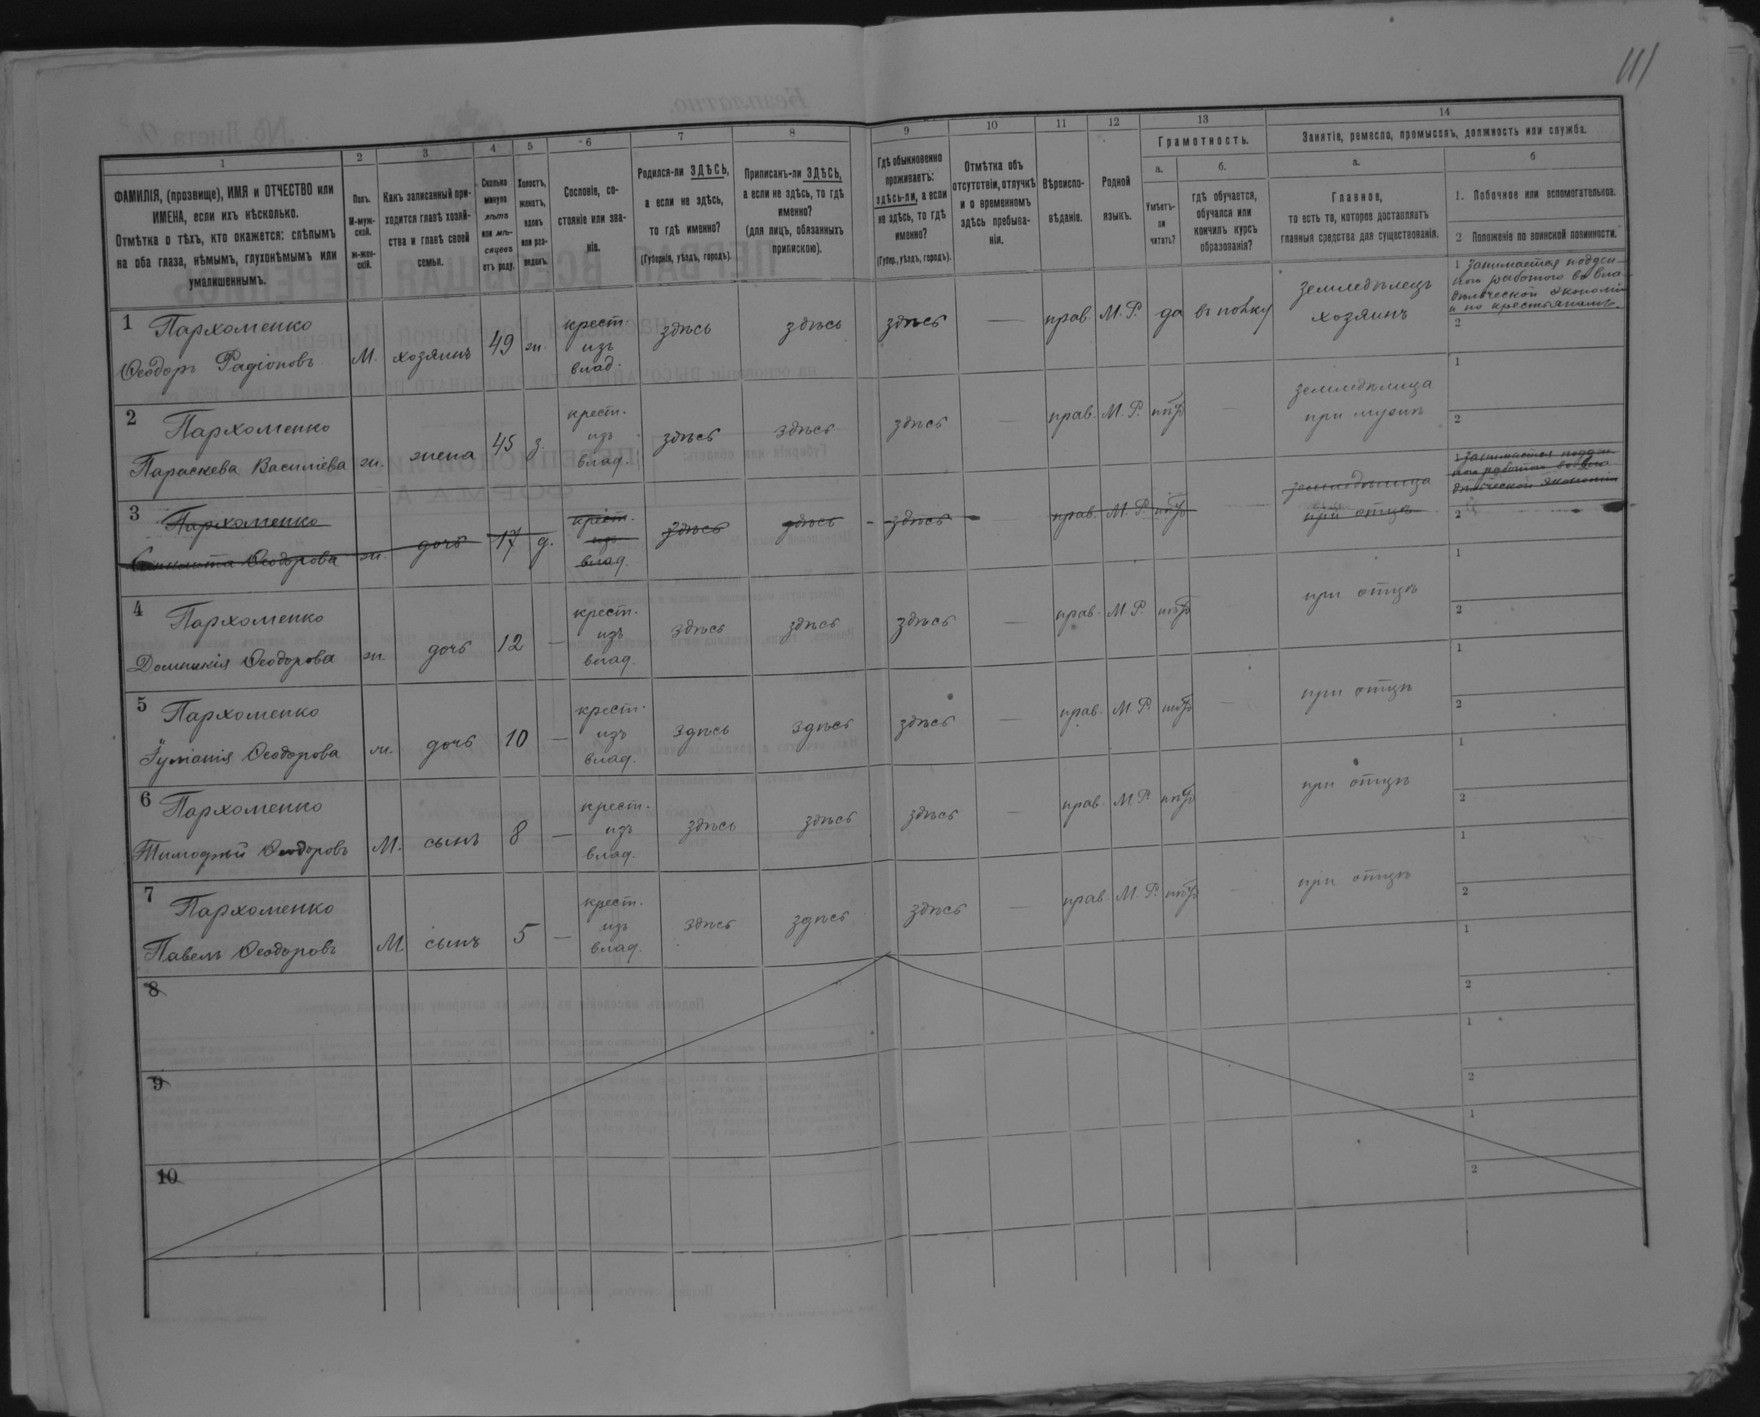 111
1
ФАМИЛІЯ, (прозвище), ИМЯ и ОТЧЕСТВО или
ИМЕНА, если ихъ нѣсколько.
Отмѣтка о тѣхъ, кто окажется: слѣпымъ
на оба глаза, нѣмымъ, глухонѣмымъ или
умалишеннымъ.
2
Полъ.
М-муж-
ской.
ж-жен-
скій.
3
Какъ записанный при-
ходится главѣ хозяй-
ства и главѣ своей
семьи.
4
Сколько
минуло
лѣтъ
или мѣ-
сяцевъ
отъ роду.
5
Холостъ,
женатъ,
вдовъ
или раз-
веденъ.
6
Сословіе, со-
стояніе или зва-
ніе.
7
Родился-ли ЗДѢСЬ,
а если не здѣсь,
то гдѣ именно?
(Губернія, уѣздъ, городъ).
8
Приписанъ-ли ЗДѢСЬ,
а если не здѣсь, то гдѣ
именно?
(для лицъ, обязанныхъ
припискою).
9
Гдѣ обыкновенно
проживаетъ:
здѣсь-ли, а если
не здѣсь, то гдѣ
именно?
(Губер., уѣздъ, городъ).
10
Отмѣтка объ
отсутствіи, отлучкѣ
и о временномъ
здѣсь пребыва-
ніи.
11
Вѣроиспо-
вѣданіе.
12
Родной
языкъ.
13
Грамотность.
а.
Умѣетъ-
ли
читать?
б.
Гдѣ обучается,
обучался или
кончилъ курсъ
образованія?
14
Занятіе, ремесло, промыселъ, должность или служба.
а.
Главное,
то есть то, которое доставляетъ
главныя средства для существованія.
б
1. Побочное или вспомогательное.
2 Положеніе по воинской повинности.
1 Пархоменко
Ѳеодоръ Радіоновъ М. хозяинъ 49 ж. крест. изъ влад. здѣсь здѣсь здѣсь — прав. М. Р. да въ полку земледѣлецъ хозяинъ
1 занимается поден-
ною работою во вла-
дѣльческой экономіи
и по крестьянамъ.
2
2 Пархоменко
Параскева Василіева ж. жена 45 з. крест. изъ влад. здѣсь здѣсь здѣсь — прав. М. Р. нѣтъ — земледѣлица при мужѣ
1
2
3 Пархоменко
Ѳеодорова ж. дочь 17 д. крест. изъ влад. здѣсь здѣсь здѣсь — прав. М. Р. нѣтъ земледѣлица при отцѣ
1 занимается поден-
ною работою во вла-
дѣльческой экономіи
2
4 Пархоменко
Домникія Ѳеодорова ж. дочь 12 — крест. изъ влад. здѣсь здѣсь здѣсь — прав. М. Р. нѣтъ при отцѣ
1
2
5 Пархоменко
Ѳеодорова ж. дочь 10 — крест. изъ влад. здѣсь здѣсь здѣсь — прав. М. Р. нѣтъ — при отцѣ
1
2
6 Пархоменко
Тимофѣй Ѳеодоровъ М. сынъ 8 — крест. изъ влад. здѣсь здѣсь здѣсь — прав. М. Р. нѣтъ при отцѣ
1
2
7 Пархоменко
Павелъ Ѳеодоровъ М. сынъ 5 — крест. изъ влад. здѣсь здѣсь здѣсь — прав. М. Р. нѣтъ — при отцѣ
1
2
8
1
2
9
1
2
10
1
2